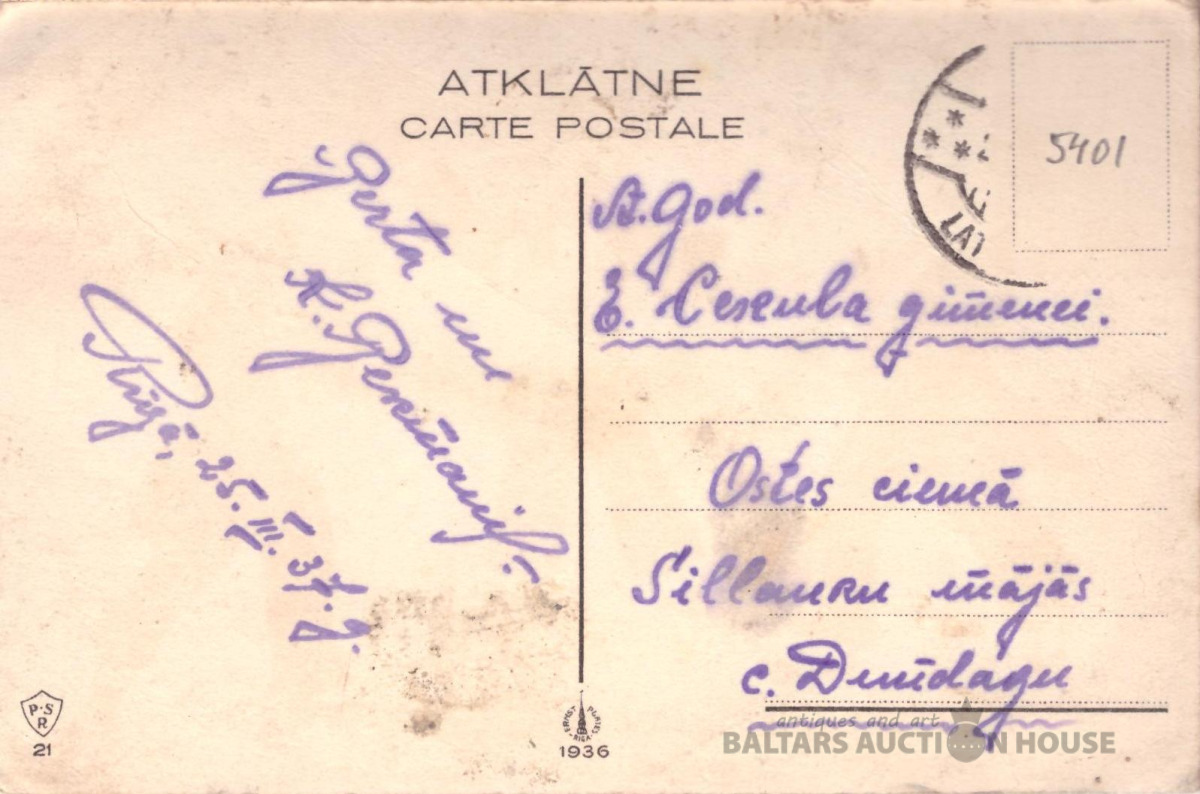 ATKLĀTNE
CARTE POSTALE
5401
LATV
Gerta un
K.
Rīgā, 25. III. 37. g.
A. God.
E. ģimenei.
Ostes ciemā
mājās
c. Dundagu
P·S
R
21
ERNST PLATES
RIGA
1936
antiques and art
BALTARS AUCTION HOUSE